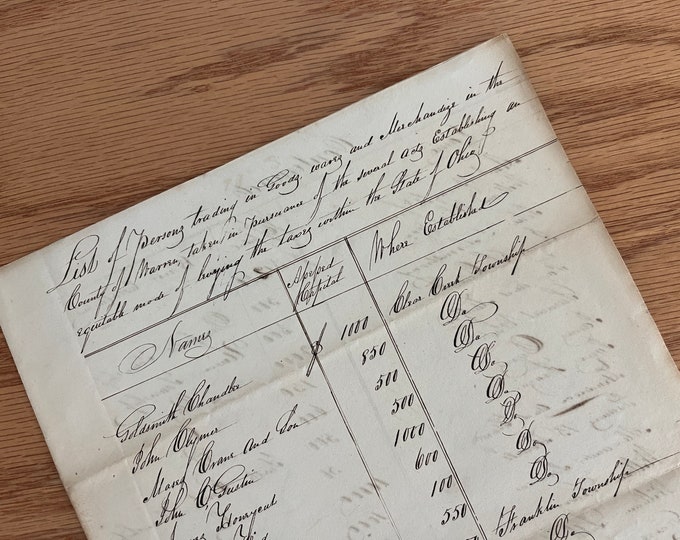 List of Persons trading in Goods wares and Merchandize in the
County of Warren, taken in pursuance of the several acts Establishing an
equitable mode of levying the taxes within the State of Ohio
Names Assessed Capital Where Established
Goldsmith Chandler $ 1000 Clear Creek Township
John Clymer 850 Do
Crane and Son 500 Do
John C Gustin 500 Do
1000 Do
600 Do
100 Do
550 Franklin Township
Do